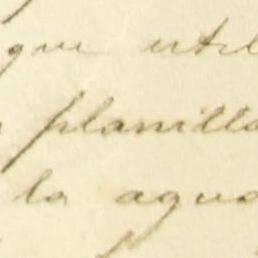 que util
planilla
la agua